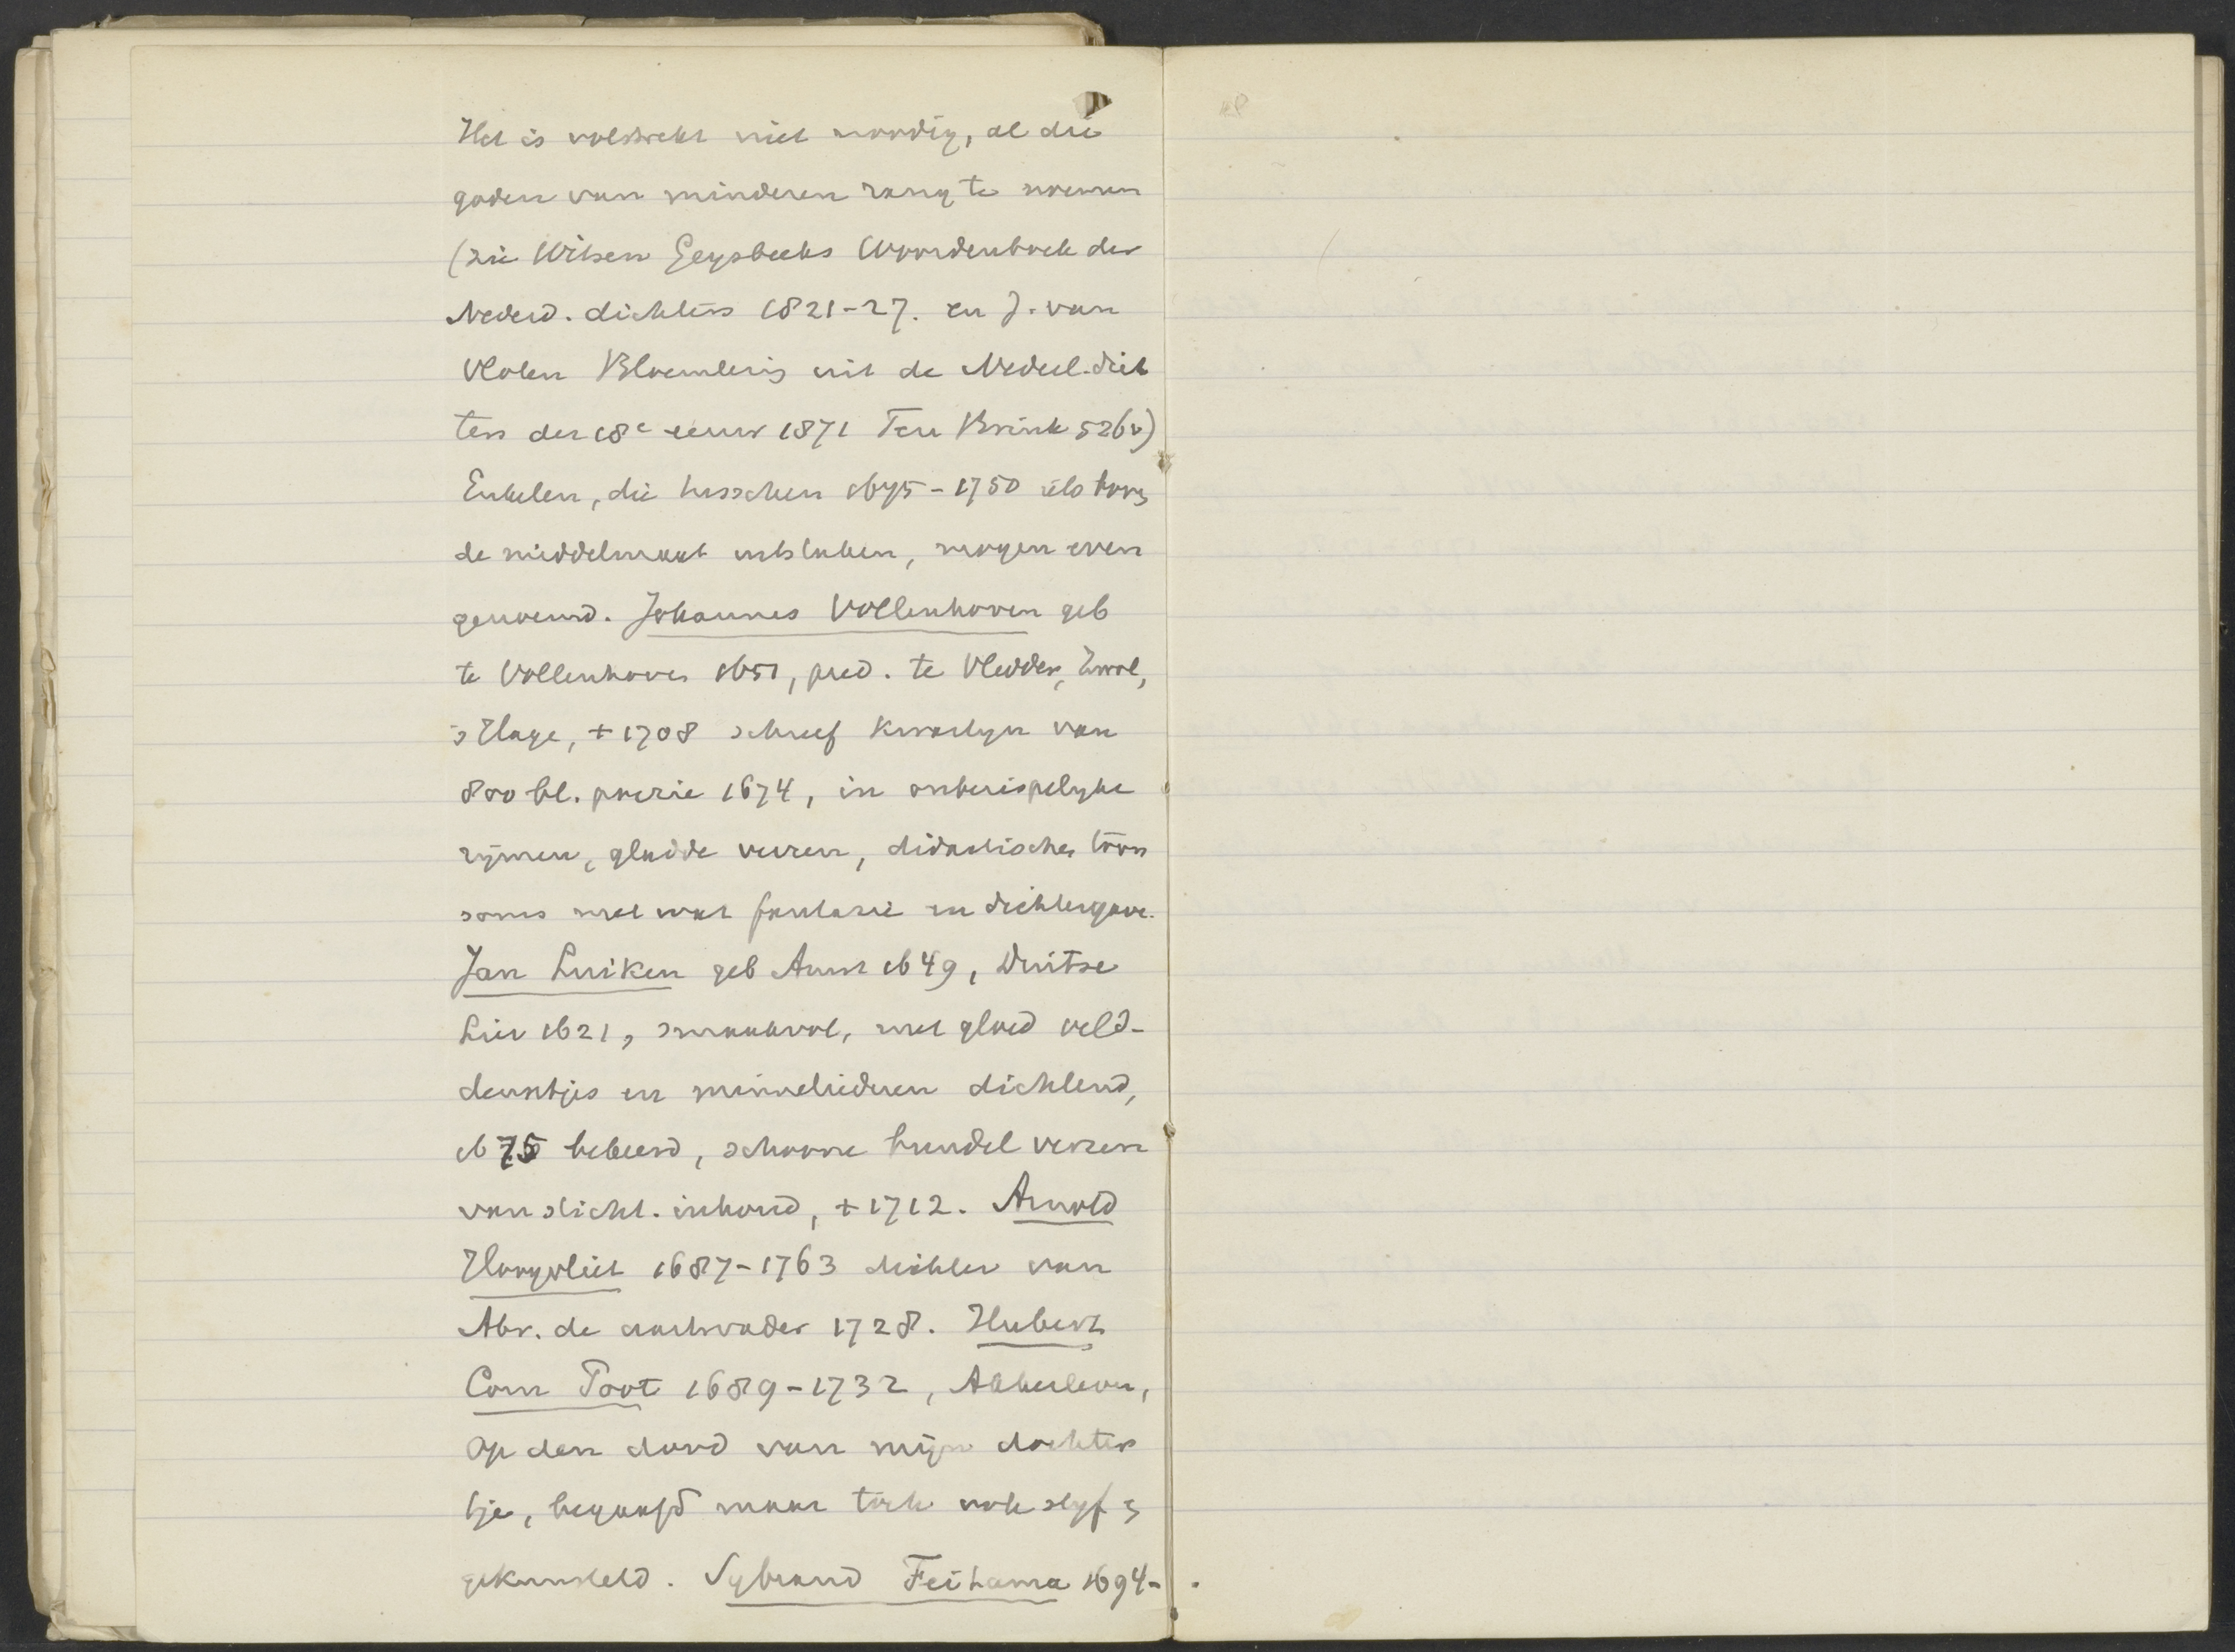 Het is volstrekt niet noodig, al die
goden van minderen rang te noemen
(zie Witsen Geysbeeks Woordenboek der
Nederd. dichters 1821-27. en J. van
Vloten Bloemlezing uit de Nederl. dich
ters der 18e eeuw 1871 Ten Brink 526v)
Enkelen, die tusschen 1675-1750 iets boven
de middelmaat uitstaken, mogen even
genoemd. Johannes Vollenhoven geb
te Vollenhove 1651, pred. te Vledder, Zwol,
's Hage, + 1708 schreef kwartijn van
800 bl. poezie 1674, in onberispelyke
rijmen, gladde verzen, didactischen toon
soms met wat fantasie en dichtergave.
Jan Luiken geb Amst 1649, Duitse
Lier 1621, smaakvol, met gloed veld-
deuntjes en minneliederen dichtend,
1675 bekeerd, schoone bundel verzen
van sticht. inhoud, + 1712. Arnold
Hoogvliet 1687-1763 dichter van
Abr. de aartsvader 1728. Hubert
Corn Poot 1689-1732, Akkerleven,
Op den dood van mijn dochter
tje, begaafd maar toch ook styf en
gekunsteld. Sybrand Feitama 1694-